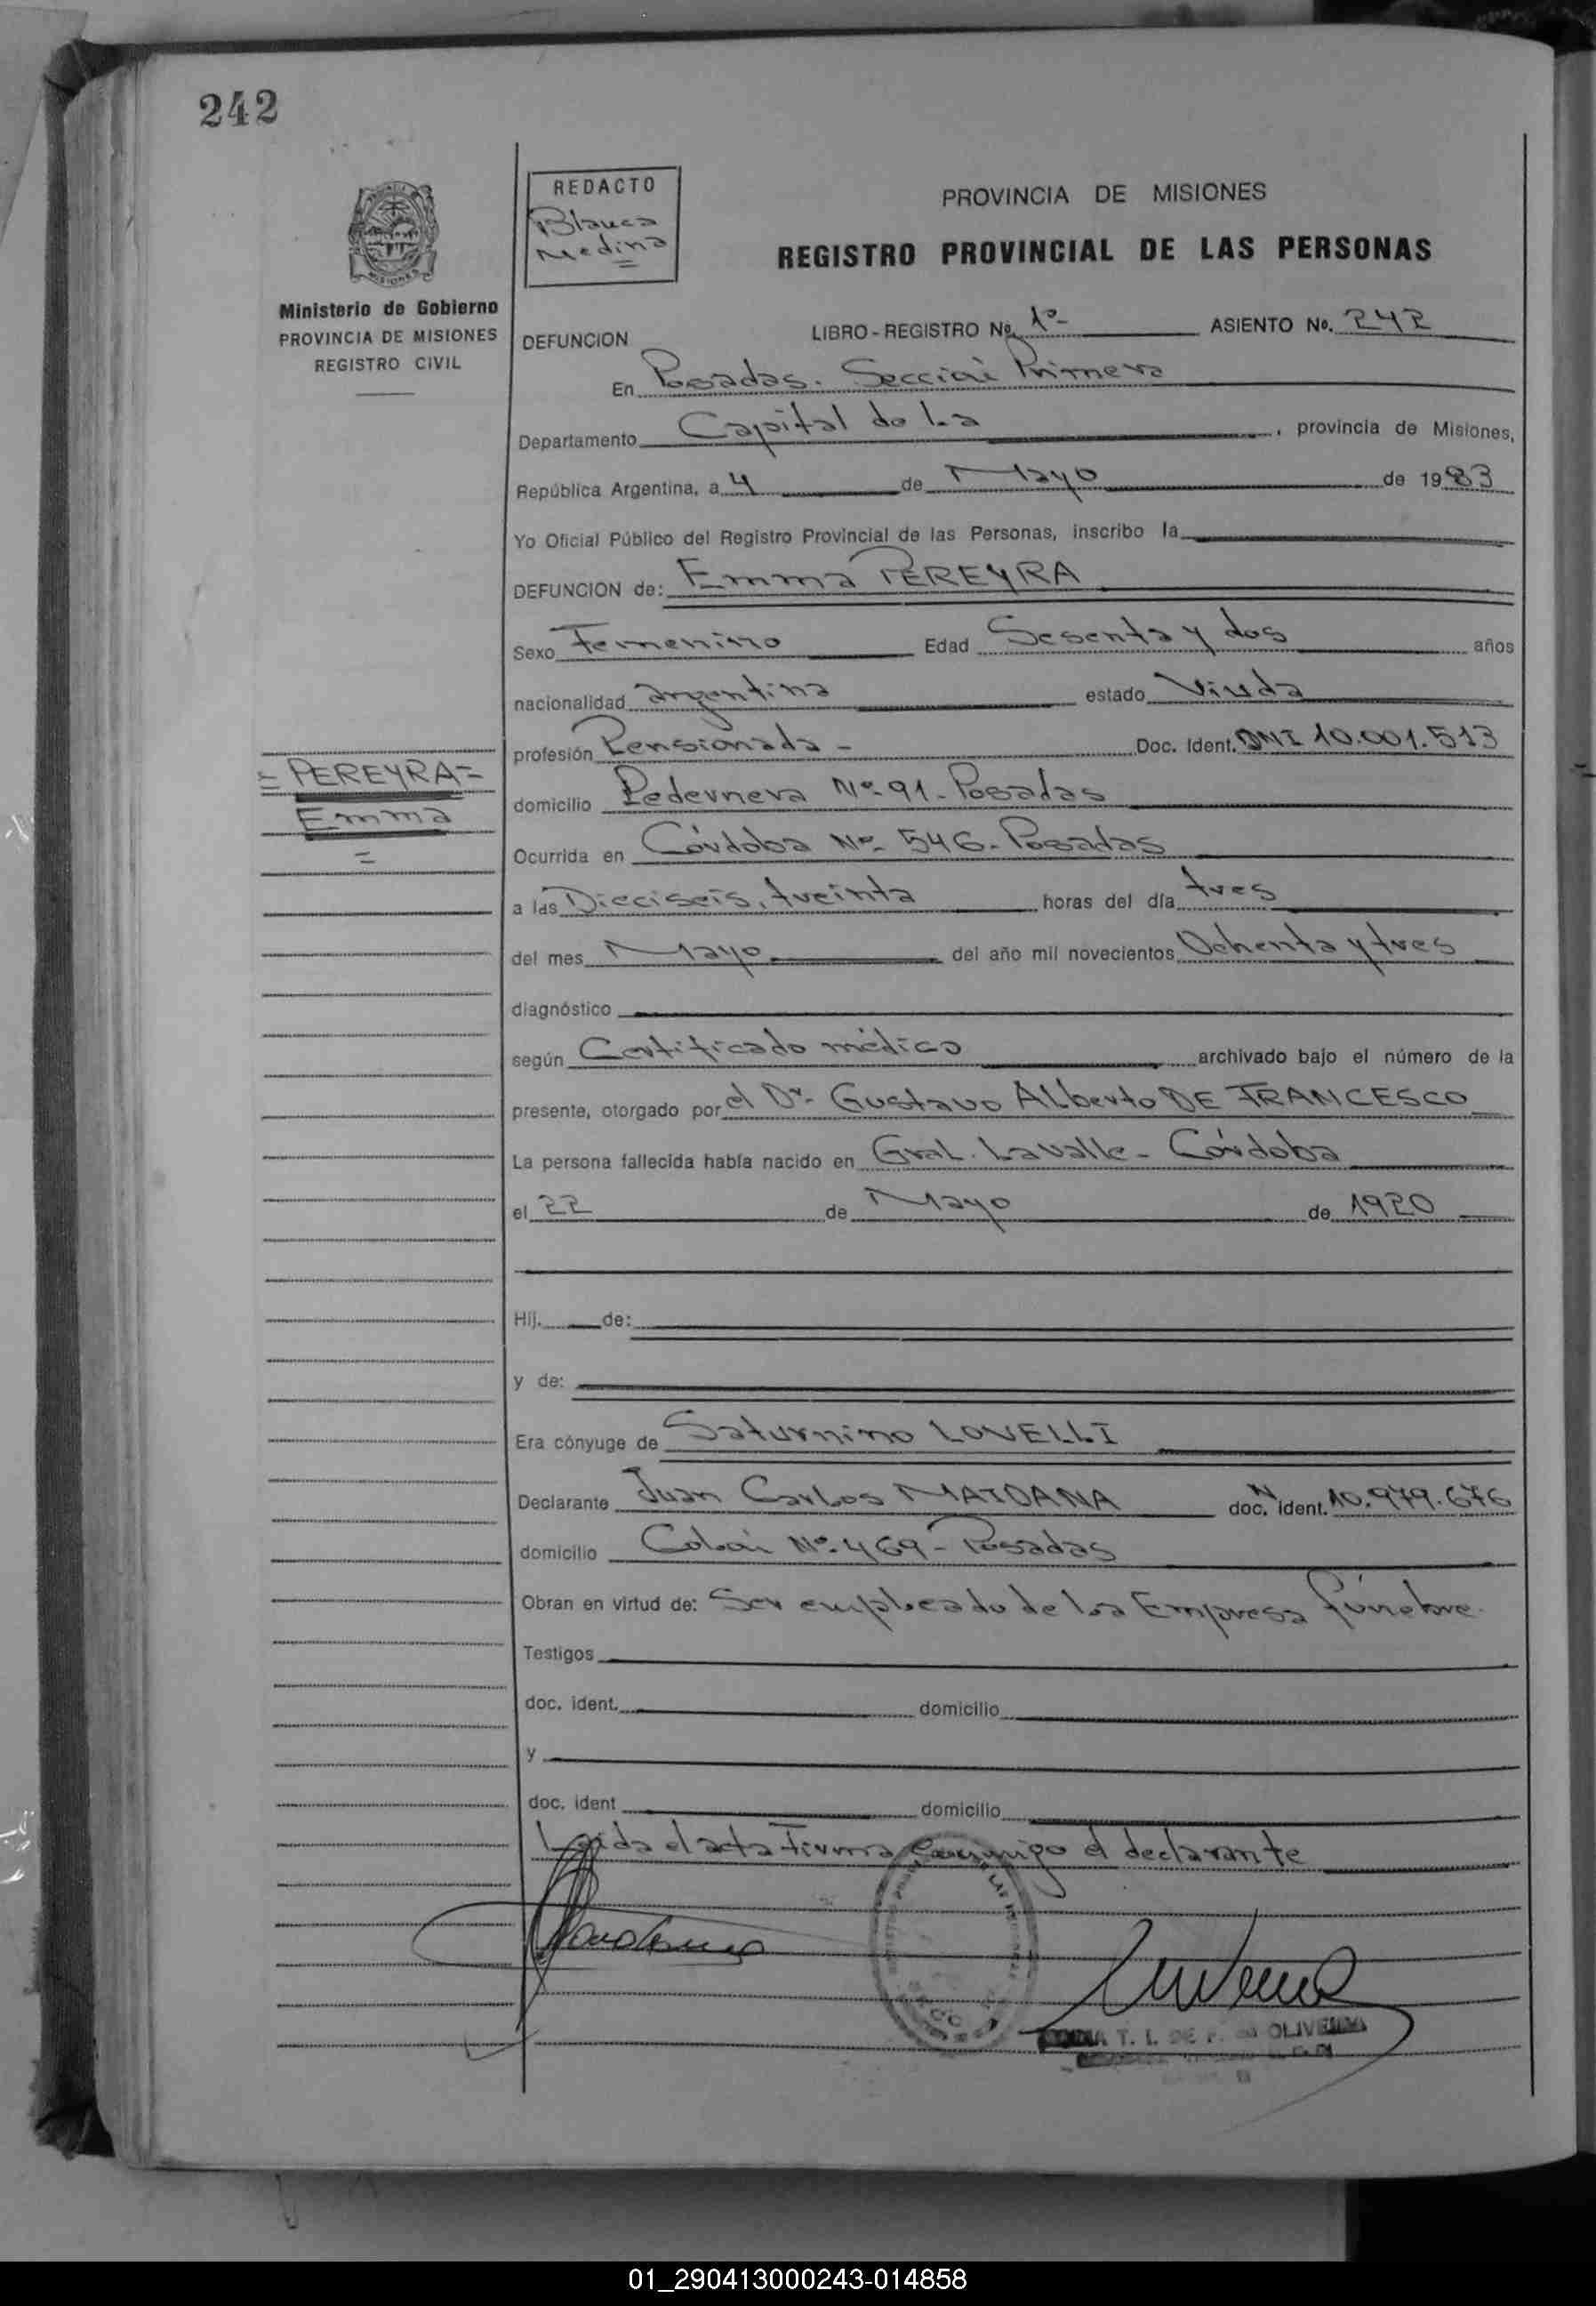 242
REDACTO
Blanca
Medina
PROVINCIA DE MISIONES
REGISTRO PROVINCIAL DE LAS PERSONAS
MISIONES
Ministerio de Gobierno
PROVINCIA DE MISIONES
REGISTRO CIVIL
DEFUNCION LIBRO-REGISTRO No. 1º- ASIENTO No. 242
En Posadas. Sección Primera
Departamento Capital de La , provincia de Misiones,
República Argentina, a 4 de Mayo de 1983
Yo Oficial Público del Registro Provincial de las Personas, inscribo la
DEFUNCION de: Emma PEREYRA
Sexo Femenino Edad Sesenta y dos años
nacionalidad argentina estado Viuda
profesión Pensionada - Doc. Ident. DNI 10.001.513
=PEREYRA=
Emma
=
domicilio Pedernera Nº 91- Posadas
Ocurrida en Córdoba Nº 546- Posadas
a las Dieciseis, treinta horas del día tres
del mes Mayo del año mil novecientos Ochenta y tres
diagnóstico
según Certificado médico archivado bajo el número de la
presente, otorgado por el Dr. Gustavo Alberto DE FRANCESCO
La persona fallecida había nacido en Gral. Lavalle - Córdoba
el 22 de Mayo de 1920
Hij. de:
y de:
Era cónyuge de Saturnino LOVELLI
Declarante Juan Carlos MAIDANA doc. N ident. 10.979.676
domicilio Colón Nº 469- Posadas
Obran en virtud de: Ser empleado de la Empresa fúnebre.
Testigos
doc. ident. domicilio
y
doc. ident domicilio
Leida el acta Firma conmigo el declarante
T. I. DE F. de OLIVEIRA
01_290413000243-014858